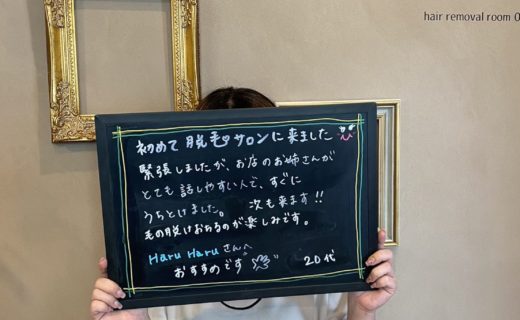 hair removal room
初めて脱毛サロンに来ました
緊張しましたが、お店のお姉さんが
とても話しやすい人で、すぐに
うちとけました。 次も来ます!!
毛の脱けおちるのが楽しみです。
Haru Haruさんへ
おすすめです 20代